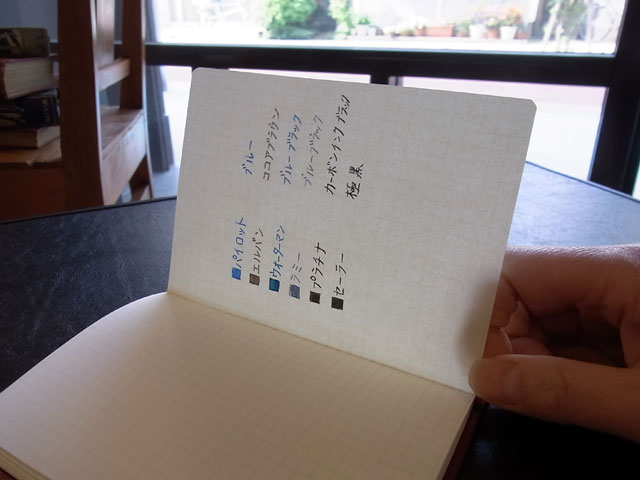 パイロット ブルー
エルバン ココアブラウン
ウォーターマン ブルーブラック
ラミー ブルーブラック
プラチナ カーボンインクブラック
セーラー 極黒